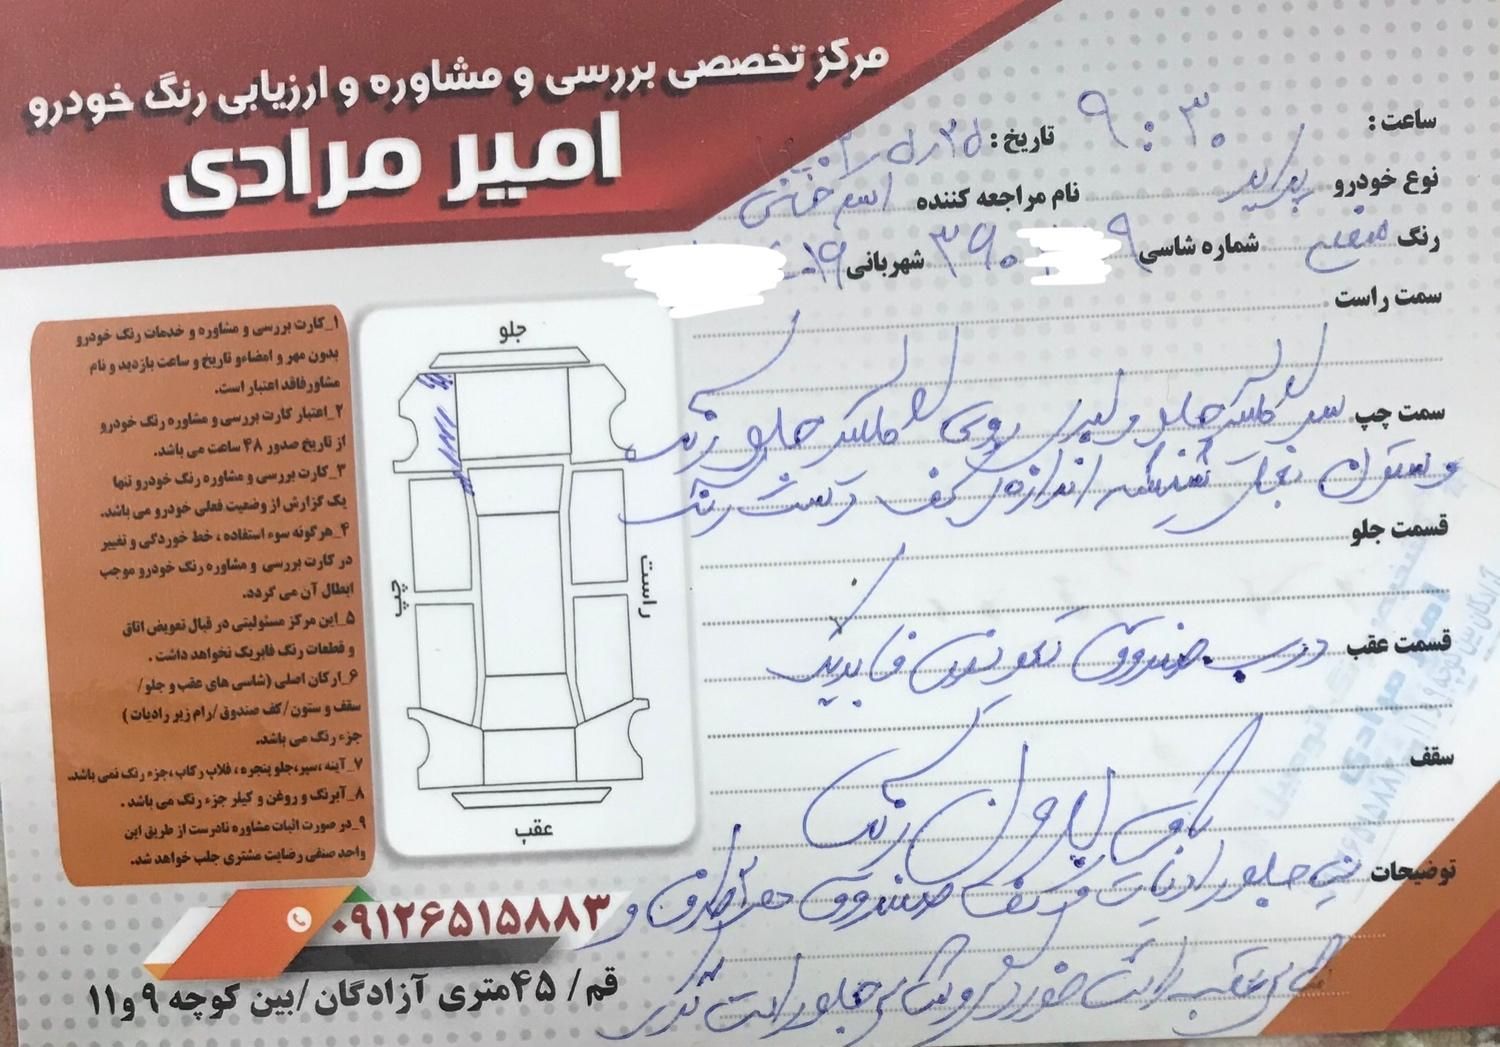 مرکز تخصصی بررسی و مشاوره و ارزیابی رنگ خودرو
امیر مرادی
ساعت : ۹:۳۰ تاریخ :
نوع خودرو پراید نام مراجعه کننده
رنگ سفید شماره شاسی ۹ ۳۹۰ شهربانی ۱۹
سمت راست
سمت چپ سر گلگیر جلو و لبه روی گلگیر جلو رنگ
و ستون بغل شیشه اندازه کف دست رنگ
قسمت جلو
قسمت عقب درب صندوق تعویض فابریک
سقف
توضیحات سینی جلو رادیات و کف صندوق طرف و
شاسی عقب راست خوردگی و شاسی جلو راست
جلو
راست
چپ
عقب
۱_کارت بررسی و مشاوره و خدمات رنگ خودرو
بدون مهر و امضاءو تاریخ و ساعت بازدید و نام
مشاورفاقد اعتبار است.
۲_اعتبار کارت بررسی و مشاوره رنگ خودرو
از تاریخ صدور ۴۸ ساعت می باشد.
۳_کارت بررسی و مشاوره رنگ خودرو تنها
یک گزارش از وضعیت فعلی خودرو می باشد.
۴_هرگونه سوء استفاده ، خط خوردگی و تغییر
در کارت بررسی و مشاوره رنگ خودرو موجب
ابطال آن می گردد.
۵_این مرکز مسئولیتی در قبال تعویض اتاق
و قطعات رنگ فابریک نخواهد داشت .
۶_ارکان اصلی (شاسی های عقب و جلو /
سقف و ستون/کف صندوق/رام زیر رادیات )
جزء رنگ می باشد.
۷_آینه ،سپر،جلو پنجره ، قلاب رکاب،جزء رنگ نمی باشد.
۸_آبرنگ و روغن و کیلر جزء رنگ می باشد .
۹_در صورت اثبات مشاوره نادرست از طریق این
واحد صنفی رضایت مشتری جلب خواهد شد.
۰۹۱۲۶۵۱۵۸۸۳
قم/ ۴۵متری آزادگان/بین کوچه ۹ و۱۱